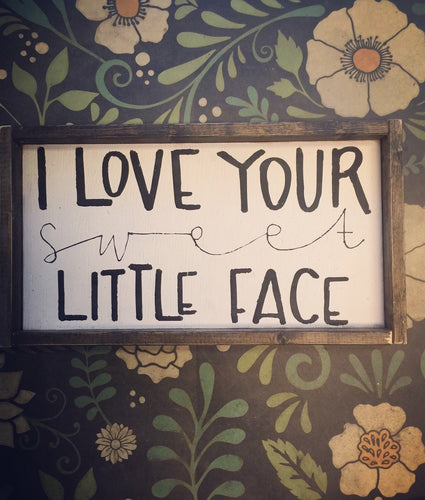 I LOVE YOUR
sweet
LITTLE FACE